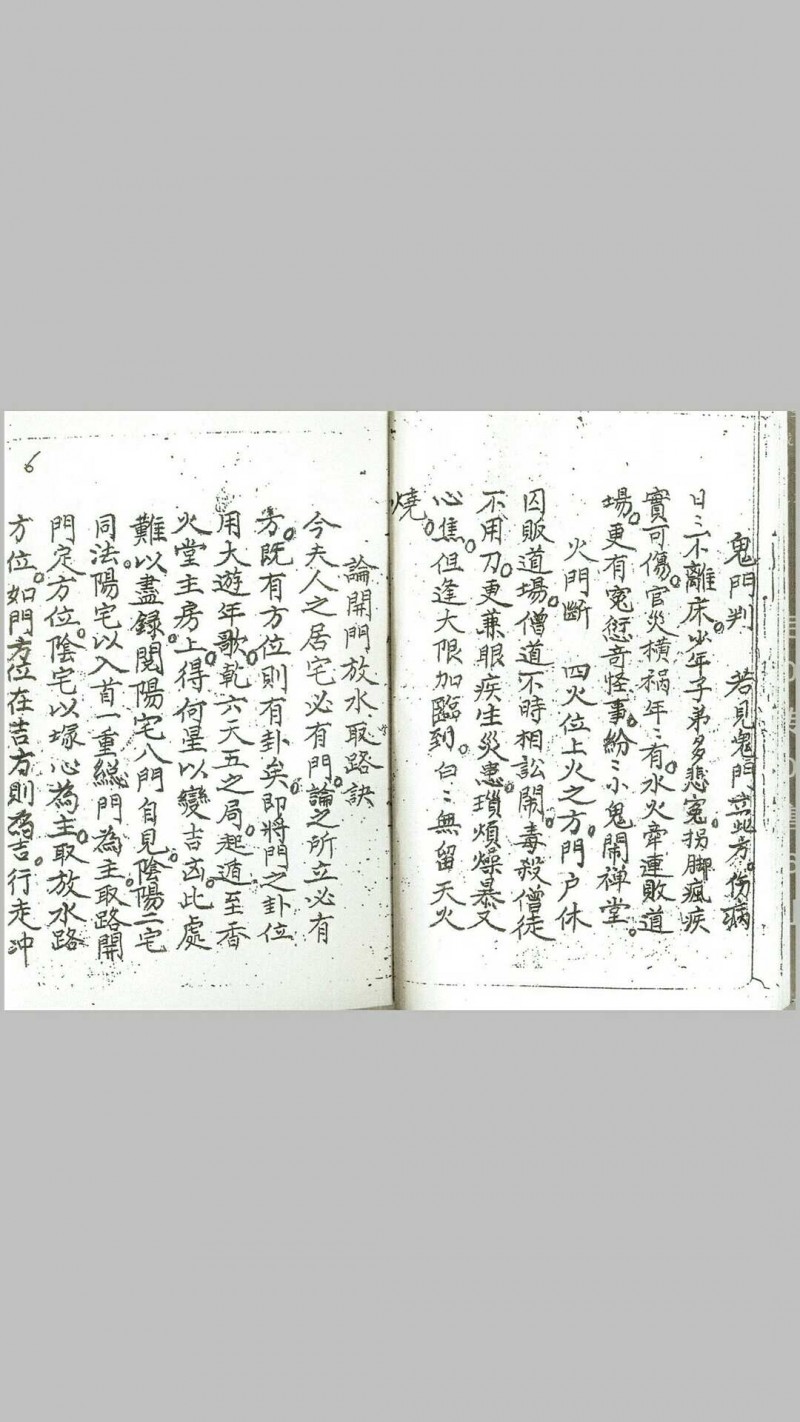 鬼門判　若見鬼門立此方。傷病
日〻不離床。少年子弟多悲冤。拐脚瘋疾
實可傷。官災橫禍年〻有。水火牽連敗道
場。更有冤愆奇怪事。紛〻小鬼鬧禅堂。
火門斷　四火位上火之方門户休
囚販道場。僧道不時相訟鬧。毒殺僧徒
不用刀。更兼眼疾生災患。瑣煩燥暴又
心焦。但逢大限加臨到。白〻無留天火
燒。
論開門放水取路訣
今夫人之居宅必有門。論之所立必有
方。既有方位則有卦矣。即將門之卦位
用大遊年歌。乾六天五之局。起遁至香
火堂主房上。得何星以變吉凶。此處
難以盡録。閱陽宅八門自見。陰陽二宅
同法陽宅以入首一重総門為主。取路開
門定方位。陰宅以塚心為主。取放水路
方位。如門方位在吉方則為吉。行走冲
6